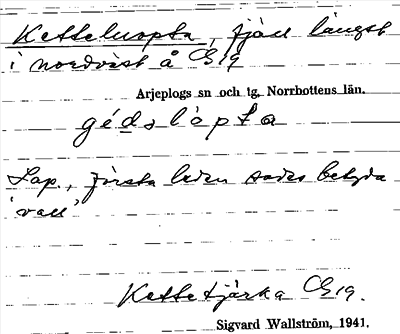 Ketteluopta, fjäll längst
i nordväst å G19
Arjeplogs sn och tg. Norrbottens län.
gédslòpta
Lap., första leden sades betyda
'vall'
Kettetjårka G19.
Sigvard Wallström, 1941.